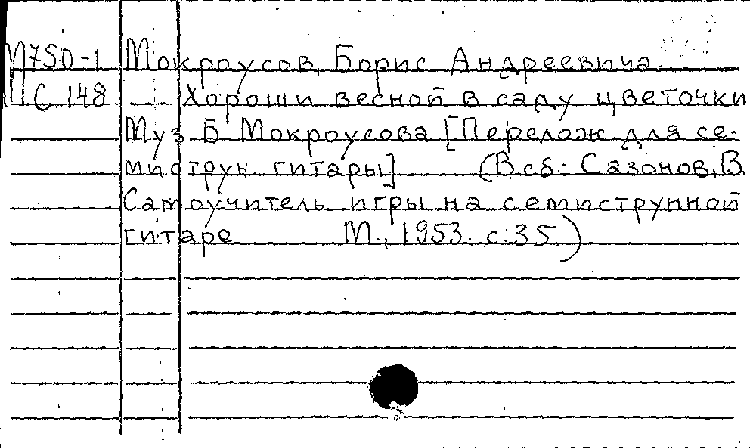 М750-1 Мокроусов, Борис Андреевича.
С 148 Хороши весной в саду цветочки
Муз. Б. Мокроусова [Перелож для се-
миструн. гитары] (В сб: Сазонов, В.
Самоучитель игры на семиструнной
гитаре М., 1953. с. 35)